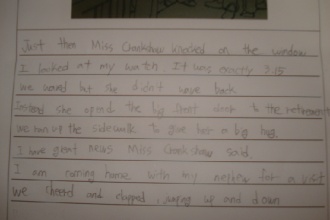 Just then Miss Crookshaw knocked on the window
I looked at my watch. It was exactly 3:15
we waved but she didn't wave back
Instead she opend the big front door to the retirement
we ran up the sidewalk to give her a big hug.
I have great news Miss Crookshaw said
I am coming home with my nephew for a visit
We cheered and clapped, jumping up and down